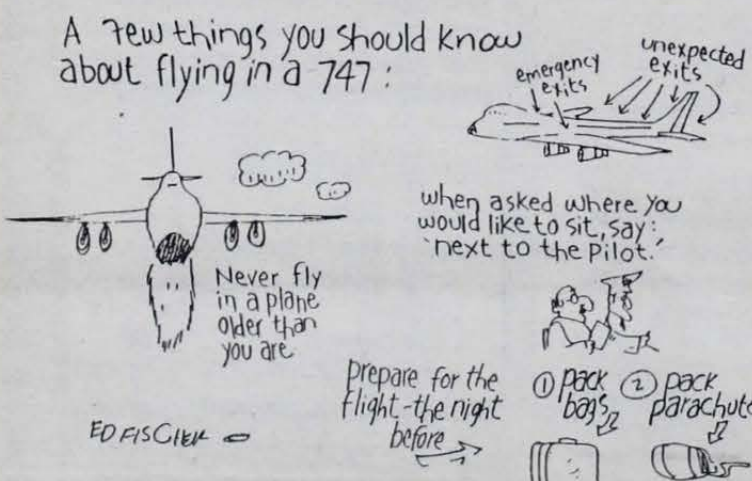 A few things you should know
about flying in a 747:
emergency
exits
unexpected
exits
Never fly
in a plane
older than
you are
when asked where you
would like to sit, say:
'next to the pilot.'
prepare for the
flight-the night
before
① pack
bags
② pack
parachute
ED FISCHER